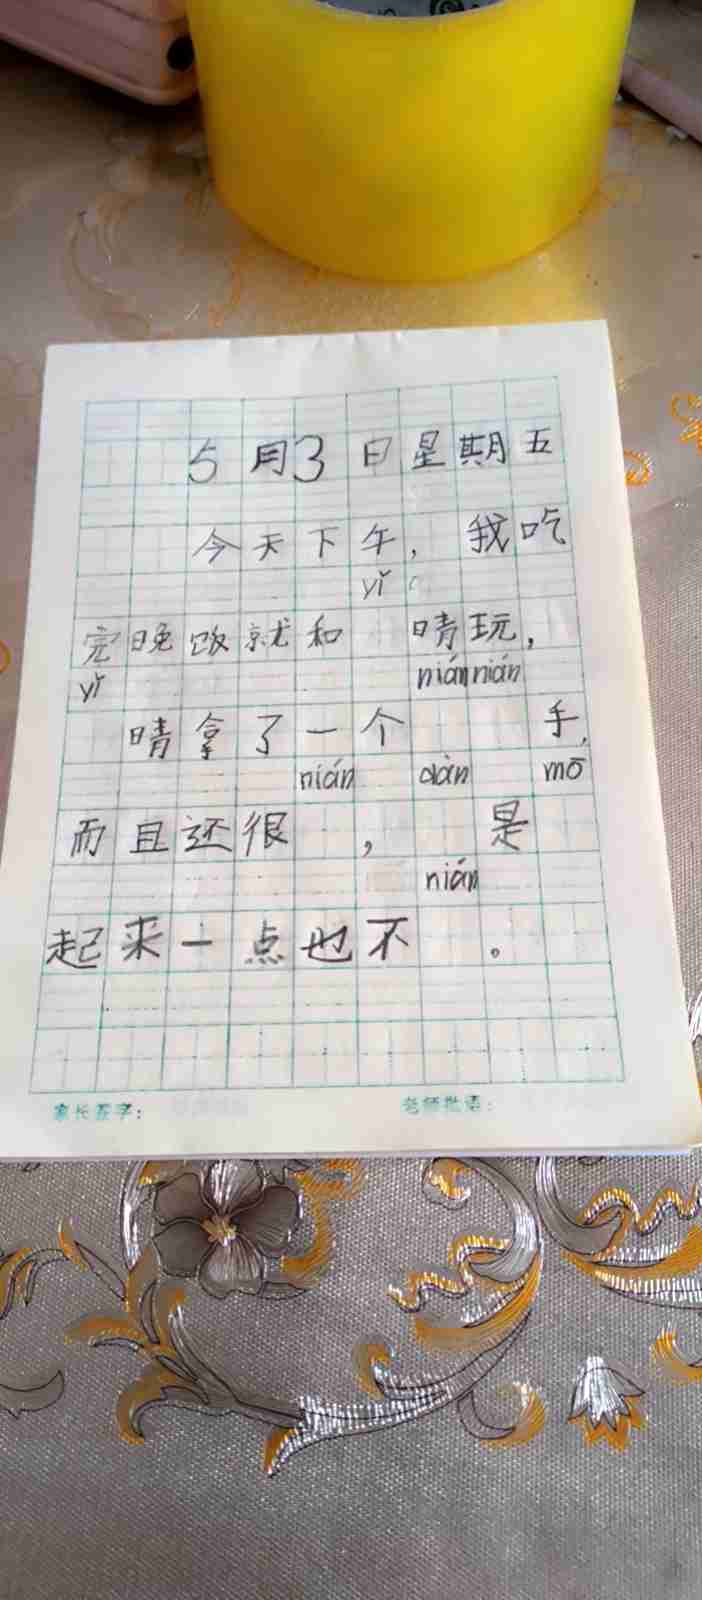 5月3日星期五
今天下午，我吃
yǐ
完晚饭就和 晴玩，
yǐ niánnián
晴拿了一个 手，
nián dàn mō
而且还很 ， 是
nián
起来一点也不 。
家长签字： 老师批语：